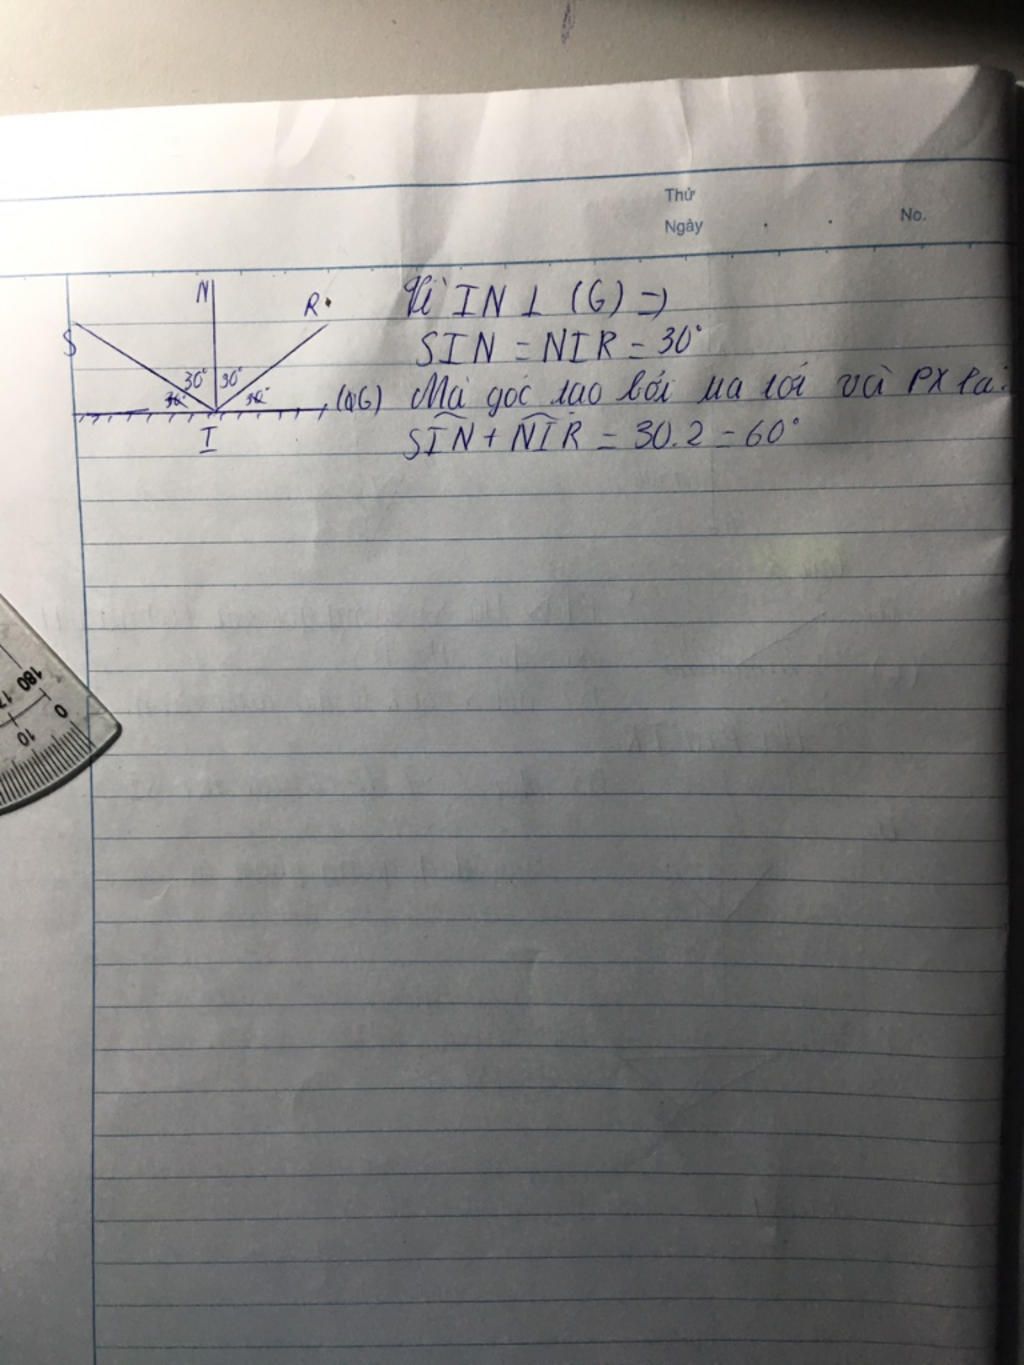 Thứ
Ngày
No.
N
R
S
30° 30°
30° 30°
(G)
I
Vì IN ⊥ (G) =>
SIN = NIR = 30°
Mà góc tạo bởi tia tới và PX là:
SIN + NIR = 30.2 = 60°
180 17
0
10